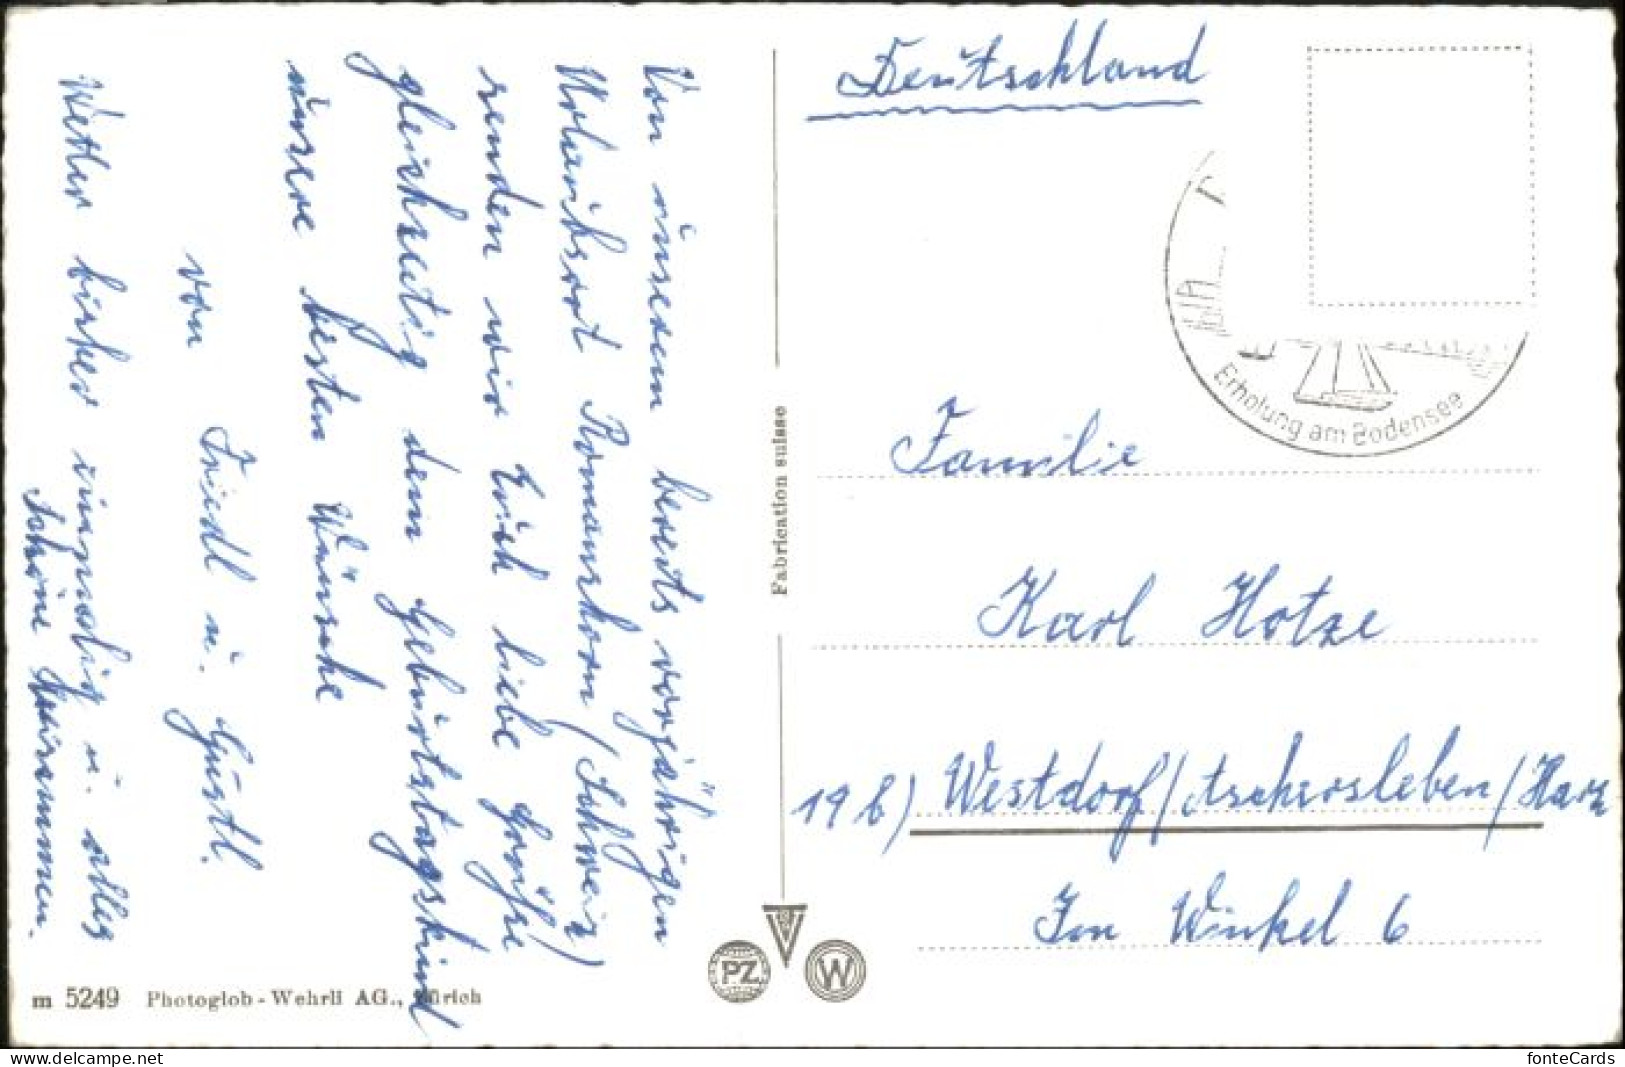 Von unserem bereits vorjährigen
Urlaubsort Romanshorn (Schweiz)
senden wir Euch liebe Grüße
gleichzeitig dem Geburtstagskind
unsere besten Wünsche
von
Friedl u. Gustl.
Wetter bisher sinnelig u. alles
schöne
Deutschland
Erholung am Bodensee
Familie
Karl Hotze
19b) Westdorf/Aschersleben/Harz
Im Winkel 6
Fabrication suisse
PZ W
m 5249 Photoglob-Wehrli AG., Zürich
www.delcampe.net
fonteCards